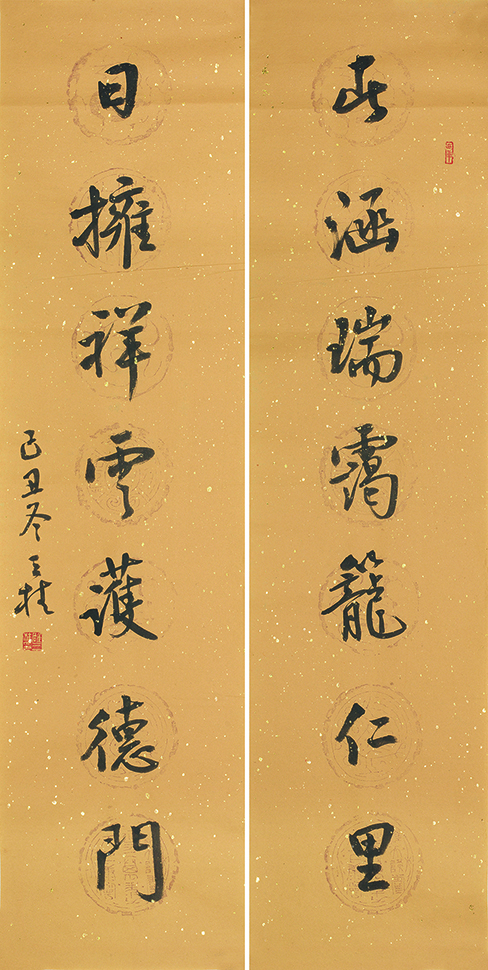 此涵瑞靄籠仁里
日擁祥雲護德門
己丑冬